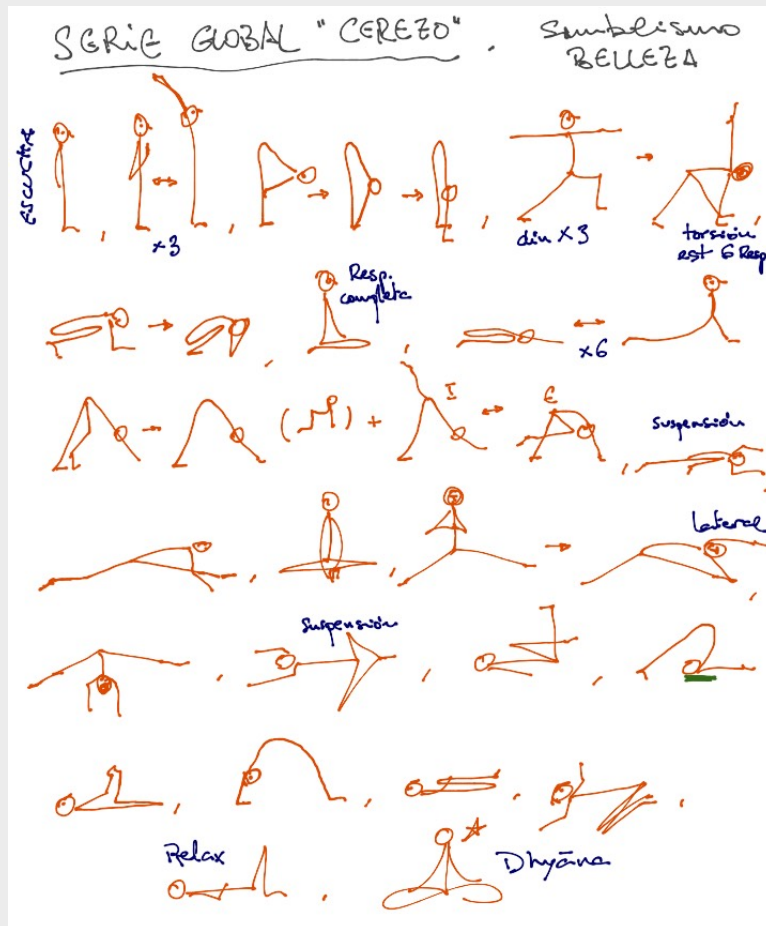 SERIE GLOBAL "CEREZO". Simbolismo
BELLEZA
ESCUCHA
x3
din x3
torsión
est 6 Resp
Resp.
completa
x6
I
E
suspensión
lateral
suspensión
Relax
Dhyāna